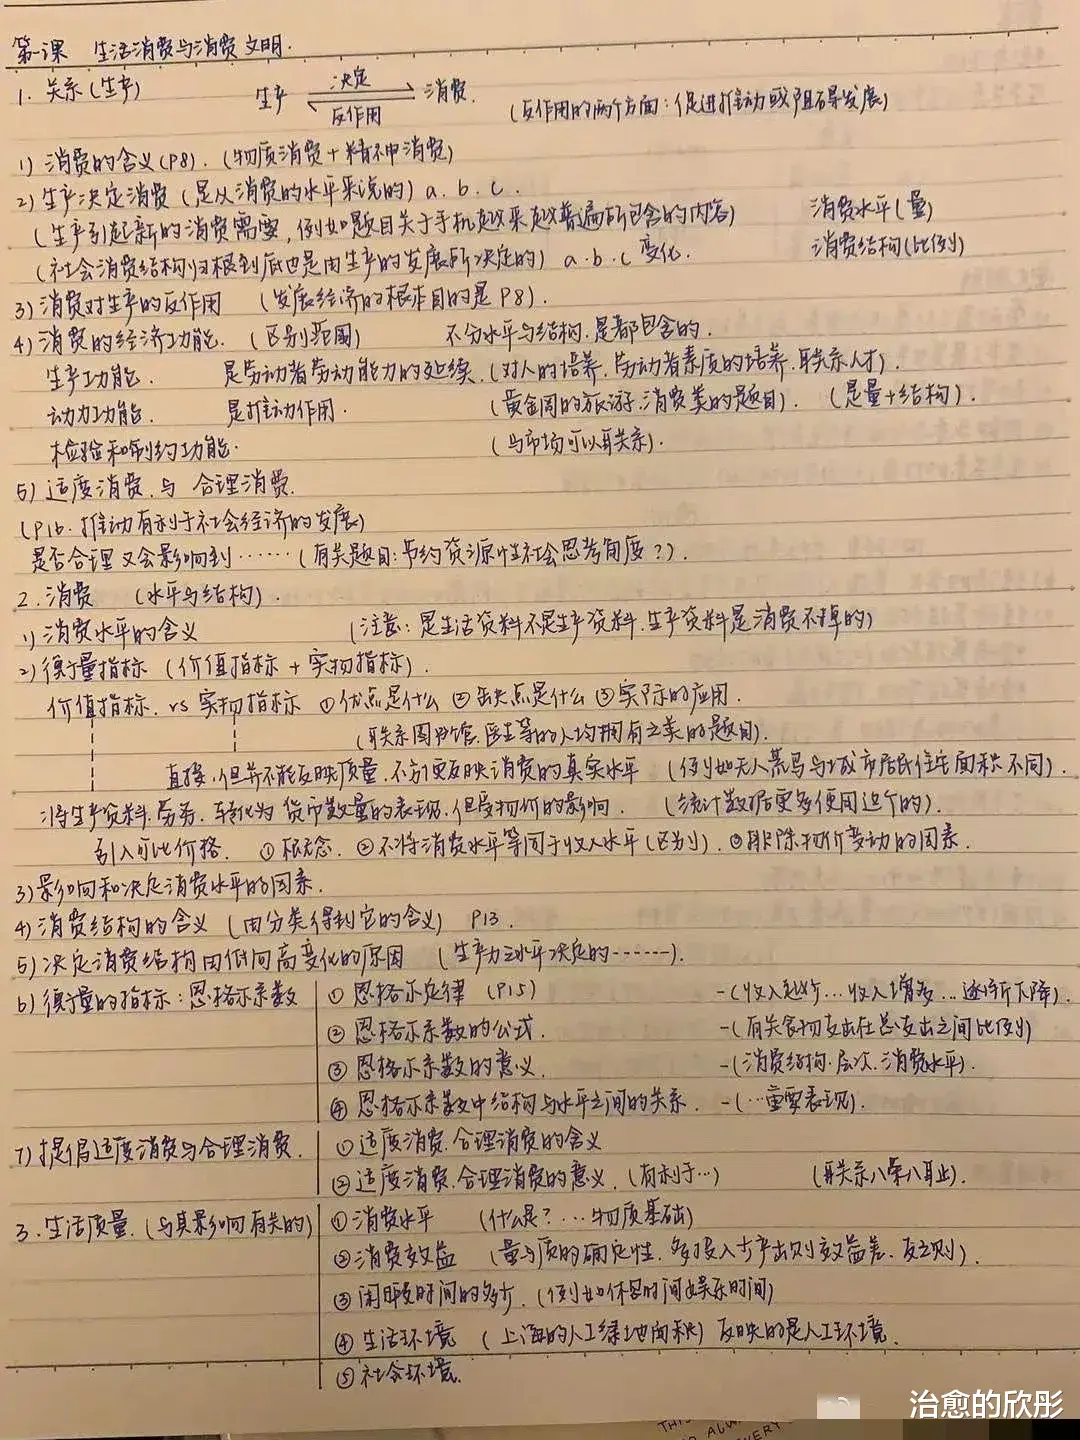 第一课 生活消费与消费文明.
1. 关系(生产) 生产 决定 消费. (反作用的两个方面:促进推动或阻碍发展)
反作用
1) 消费的含义(P8). (物质消费+精神消费)
2) 生产决定消费(是从消费的水平来说的) a. b. c.
(生产引起新的消费需要,例如题目关于手机越来越普遍所包含的内容) 消费水平(量)
(社会消费结构归根到底也是由生产的发展所决定的) a.b.c 变化. 消费结构(比例)
3) 消费对生产的反作用 (发展经济的根本目的是P8).
4) 消费的经济功能. (区别范围) 不分水平与结构.是都包含的.
生产功能. 是劳动者劳动能力的延续.(对人的培养.劳动者素质的培养.联系人才).
动力功能. 是推动作用. (黄金周的旅游.消费类的题目). (是量+结构).
检验和制约功能. (与市场可以联系).
5) 适度消费.与 合理消费.
(P16. 推动有利于社会经济的发展)
是否合理又会影响到……(有关题目:节约资源性社会思考角度?).
2.消费 (水平与结构).
1) 消费水平的含义 (注意:是生活资料不是生产资料.生产资料是消费不掉的)
2) 衡量指标(价值指标+实物指标).
价值指标. vs 实物指标 ①优点是什么 ②缺点是什么 ③实际的应用.
(联系图书馆.医生等的人均拥有之类的题目).
直接.但并不能反映质量.不方便反映消费的真实水平 (例如无人荒岛与城市居民住宅面积不同).
将生产资料.劳务.转化为 货币数量的表现.但受物价的影响. (统计数据更多使用这个的).
引入可比价格. ①概念. ②不将消费水平等同于收入水平(区别). ③排除物价变动的因素.
3) 影响和决定消费水平的因素.
4) 消费结构的含义 (由分类得到它的含义) P13.
5) 决定消费结构由低向高变化的原因 (生产力水平决定的------).
6) 衡量的指标:恩格尔系数 ① 恩格尔定律 (P15) -(收入越少…收入增多…逐渐下降).
② 恩格尔系数的公式. -(有关食物支出在总支出之间比例)
③ 恩格尔系数的意义. -(消费结构.层次.消费水平).
④ 恩格尔系数中结构与水平之间的关系. -(…重要表现).
7) 提倡适度消费与合理消费. ① 适度消费.合理消费的含义
② 适度消费.合理消费的意义.(有利于…) (联系八荣八耻).
3.生活质量.(与其影响有关的) ① 消费水平 (什么是?…物质基础)
② 消费效益 (量与质的确定性.多投入少产出则效益差.反之则).
③ 闲暇时间的多少.(例如休息时间娱乐时间)
④ 生活环境 (上海的人工绿地面积) 反映的是人工环境.
⑤ 社会环境.
治愈的欣彤